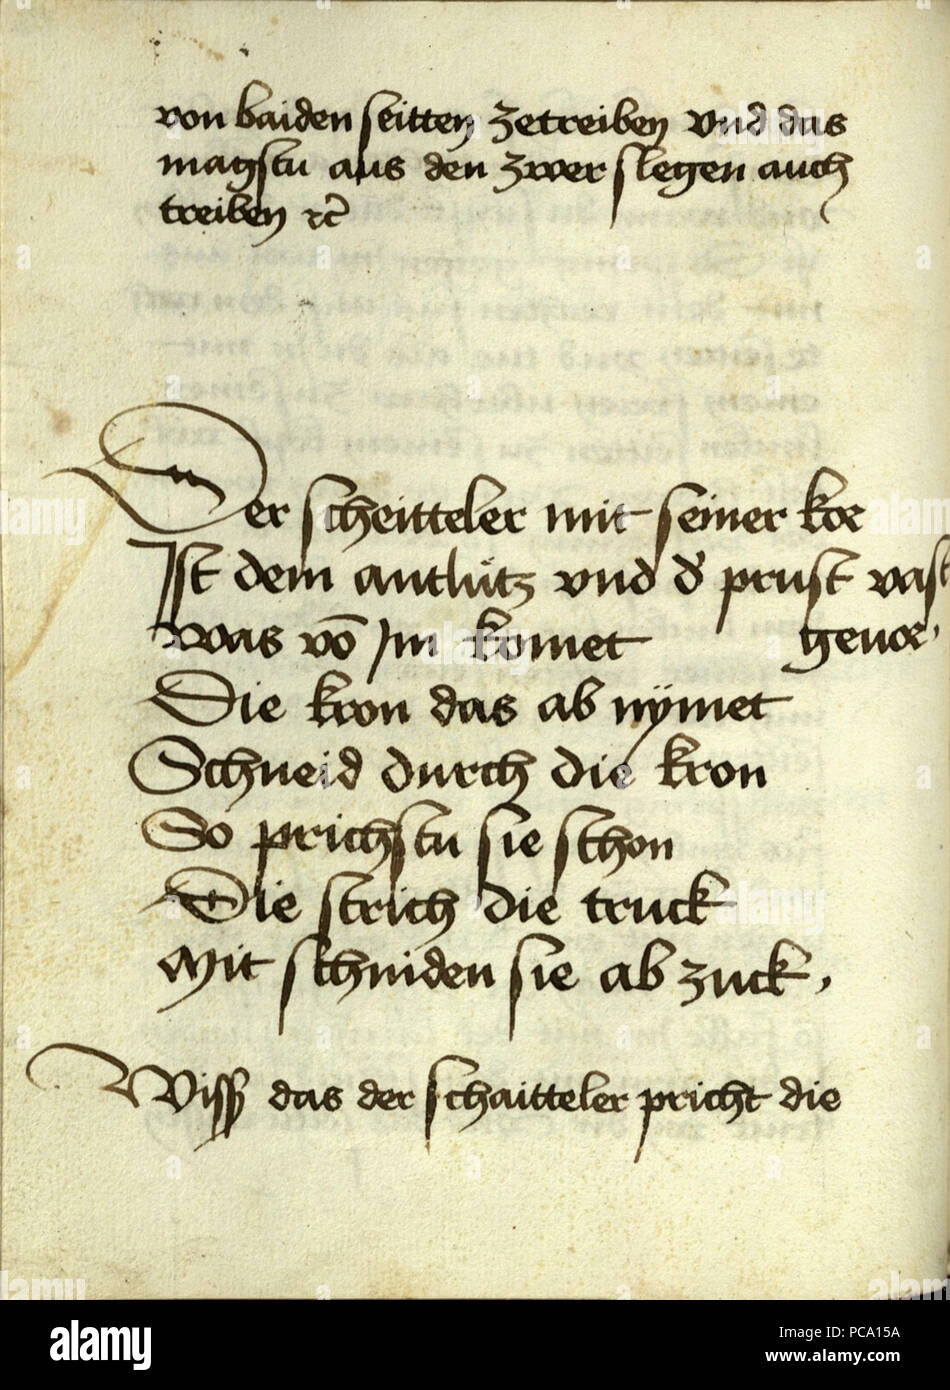 von baiden seitten zetreiben vnd das
magstu aus den zwer slegen auch
treiben ꝛc̄
Der scheitteler mit seiner kor
Ist dem antlütz vnd d' prust vast
was vō Im komet geuor.
Die kron das ab nÿmet
Schneid durch die kron
So prichstu sie schon
Die strich die truck
Mit schniden sie ab zuck.
Wiss das der schaitteler pricht die
alamy
Image ID: PCA15A
www.alamy.com